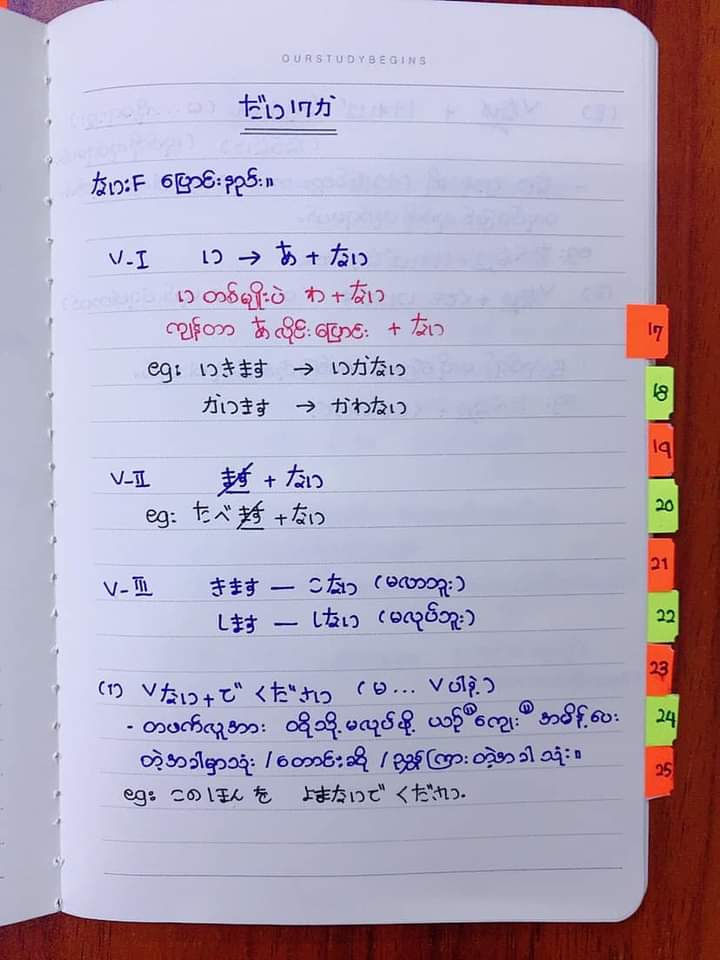 OURSTUDYBEGINS
だい 17 か
ない:F ပြောင်းနည်း။
V-I い → あ + ない
い တစ်မျိုးပဲ わ + ない
ကျန်တာ あ လိုင်းပြောင်း + ない
eg: いきます → いかない
かいます → かわない
V-II ます + ない
eg: たべます + ない
V-III きます — こない (မလာဘူး)
します — しない (မလုပ်ဘူး)
(1) Vない + で ください (မ... V ပါနဲ့)
- တဖက်လူအား ထိုသို့မလုပ်ဖို့ ယဉ်ကျေးစွာ အမိန့်ပေး
တဲ့အခါမှာသုံး / တောင်းဆို / ညွှန်ကြားတဲ့အခါ သုံး။
eg: このほんを よまないで ください.
17
18
19
20
21
22
23
24
25